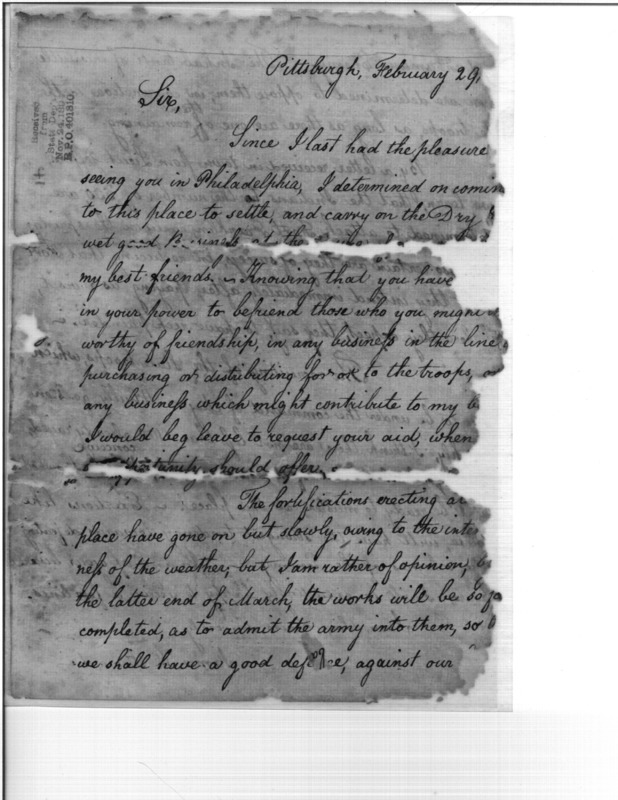 Pittsburgh, February 29,
Sir,
Received
from
State Dep't
Nov. 24, 19
R.P.O 401810.
Since I last had the pleasure
seeing you in Philadelphia, I determined on comin
to this place to settle, and carry on the Dry
wet good Business at the
my best friends. Knowing that you have
in your power to befriend those who you might
worthy of friendship, in any business in the line
purchasing or distributing for to the troops, or
any business which might contribute to my
I would beg leave to request your aid, when
opportunity should offer.
The fortifications erecting at
place have gone on but slowly, owing to the inte
ness of the weather, but I am rather of opinion,
the latter end of March, the works will be so fa
completed, as to admit the army into them, so
we shall have a good defence, against our